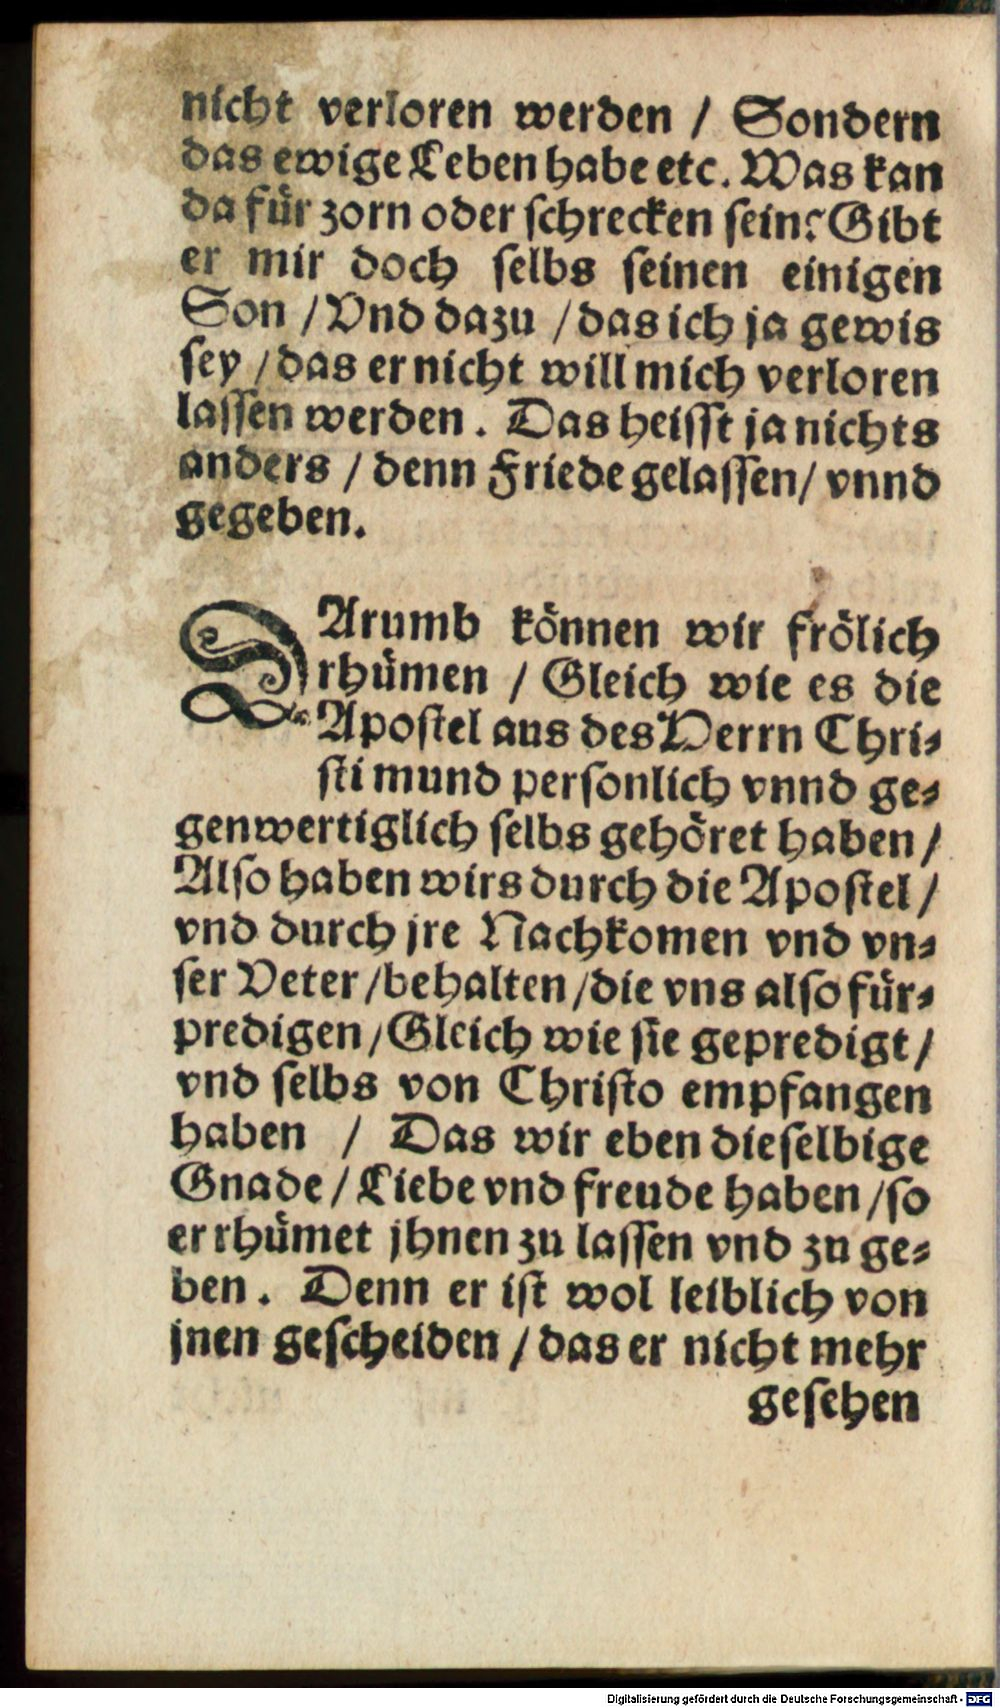 nicht verloren werden / Sondern
das ewige Leben habe etc. Was kan
da für zorn oder schrecken sein? Gibt
er mir doch selbs seinen einigen
Son / Vnd dazu / das ich ja gewis
sey / das er nicht will mich verloren
lassen werden. Das heisst ja nichts
anders / denn Friede gelassen / vnnd
gegeben.
DArumb können wir frölich
rhümen / Gleich wie es die
Apostel aus des Herrn Chri-
sti mund personlich vnnd ge-
genwertiglich selbs gehöret haben /
Also haben wirs durch die Apostel /
vnd durch jre Nachkomen vnd vn-
ser Veter / behalten / die vns also für-
predigen / Gleich wie sie gepredigt /
vnd selbs von Christo empfangen
haben / Das wir eben dieselbige
Gnade / Liebe vnd freude haben / so
er rhümet jhnen zu lassen vnd zu ge-
ben. Denn er ist wol leiblich von
jnen gescheiden / das er nicht mehr
gesehen
Digitalisierung gefördert durch die Deutsche Forschungsgemeinschaft - DFG